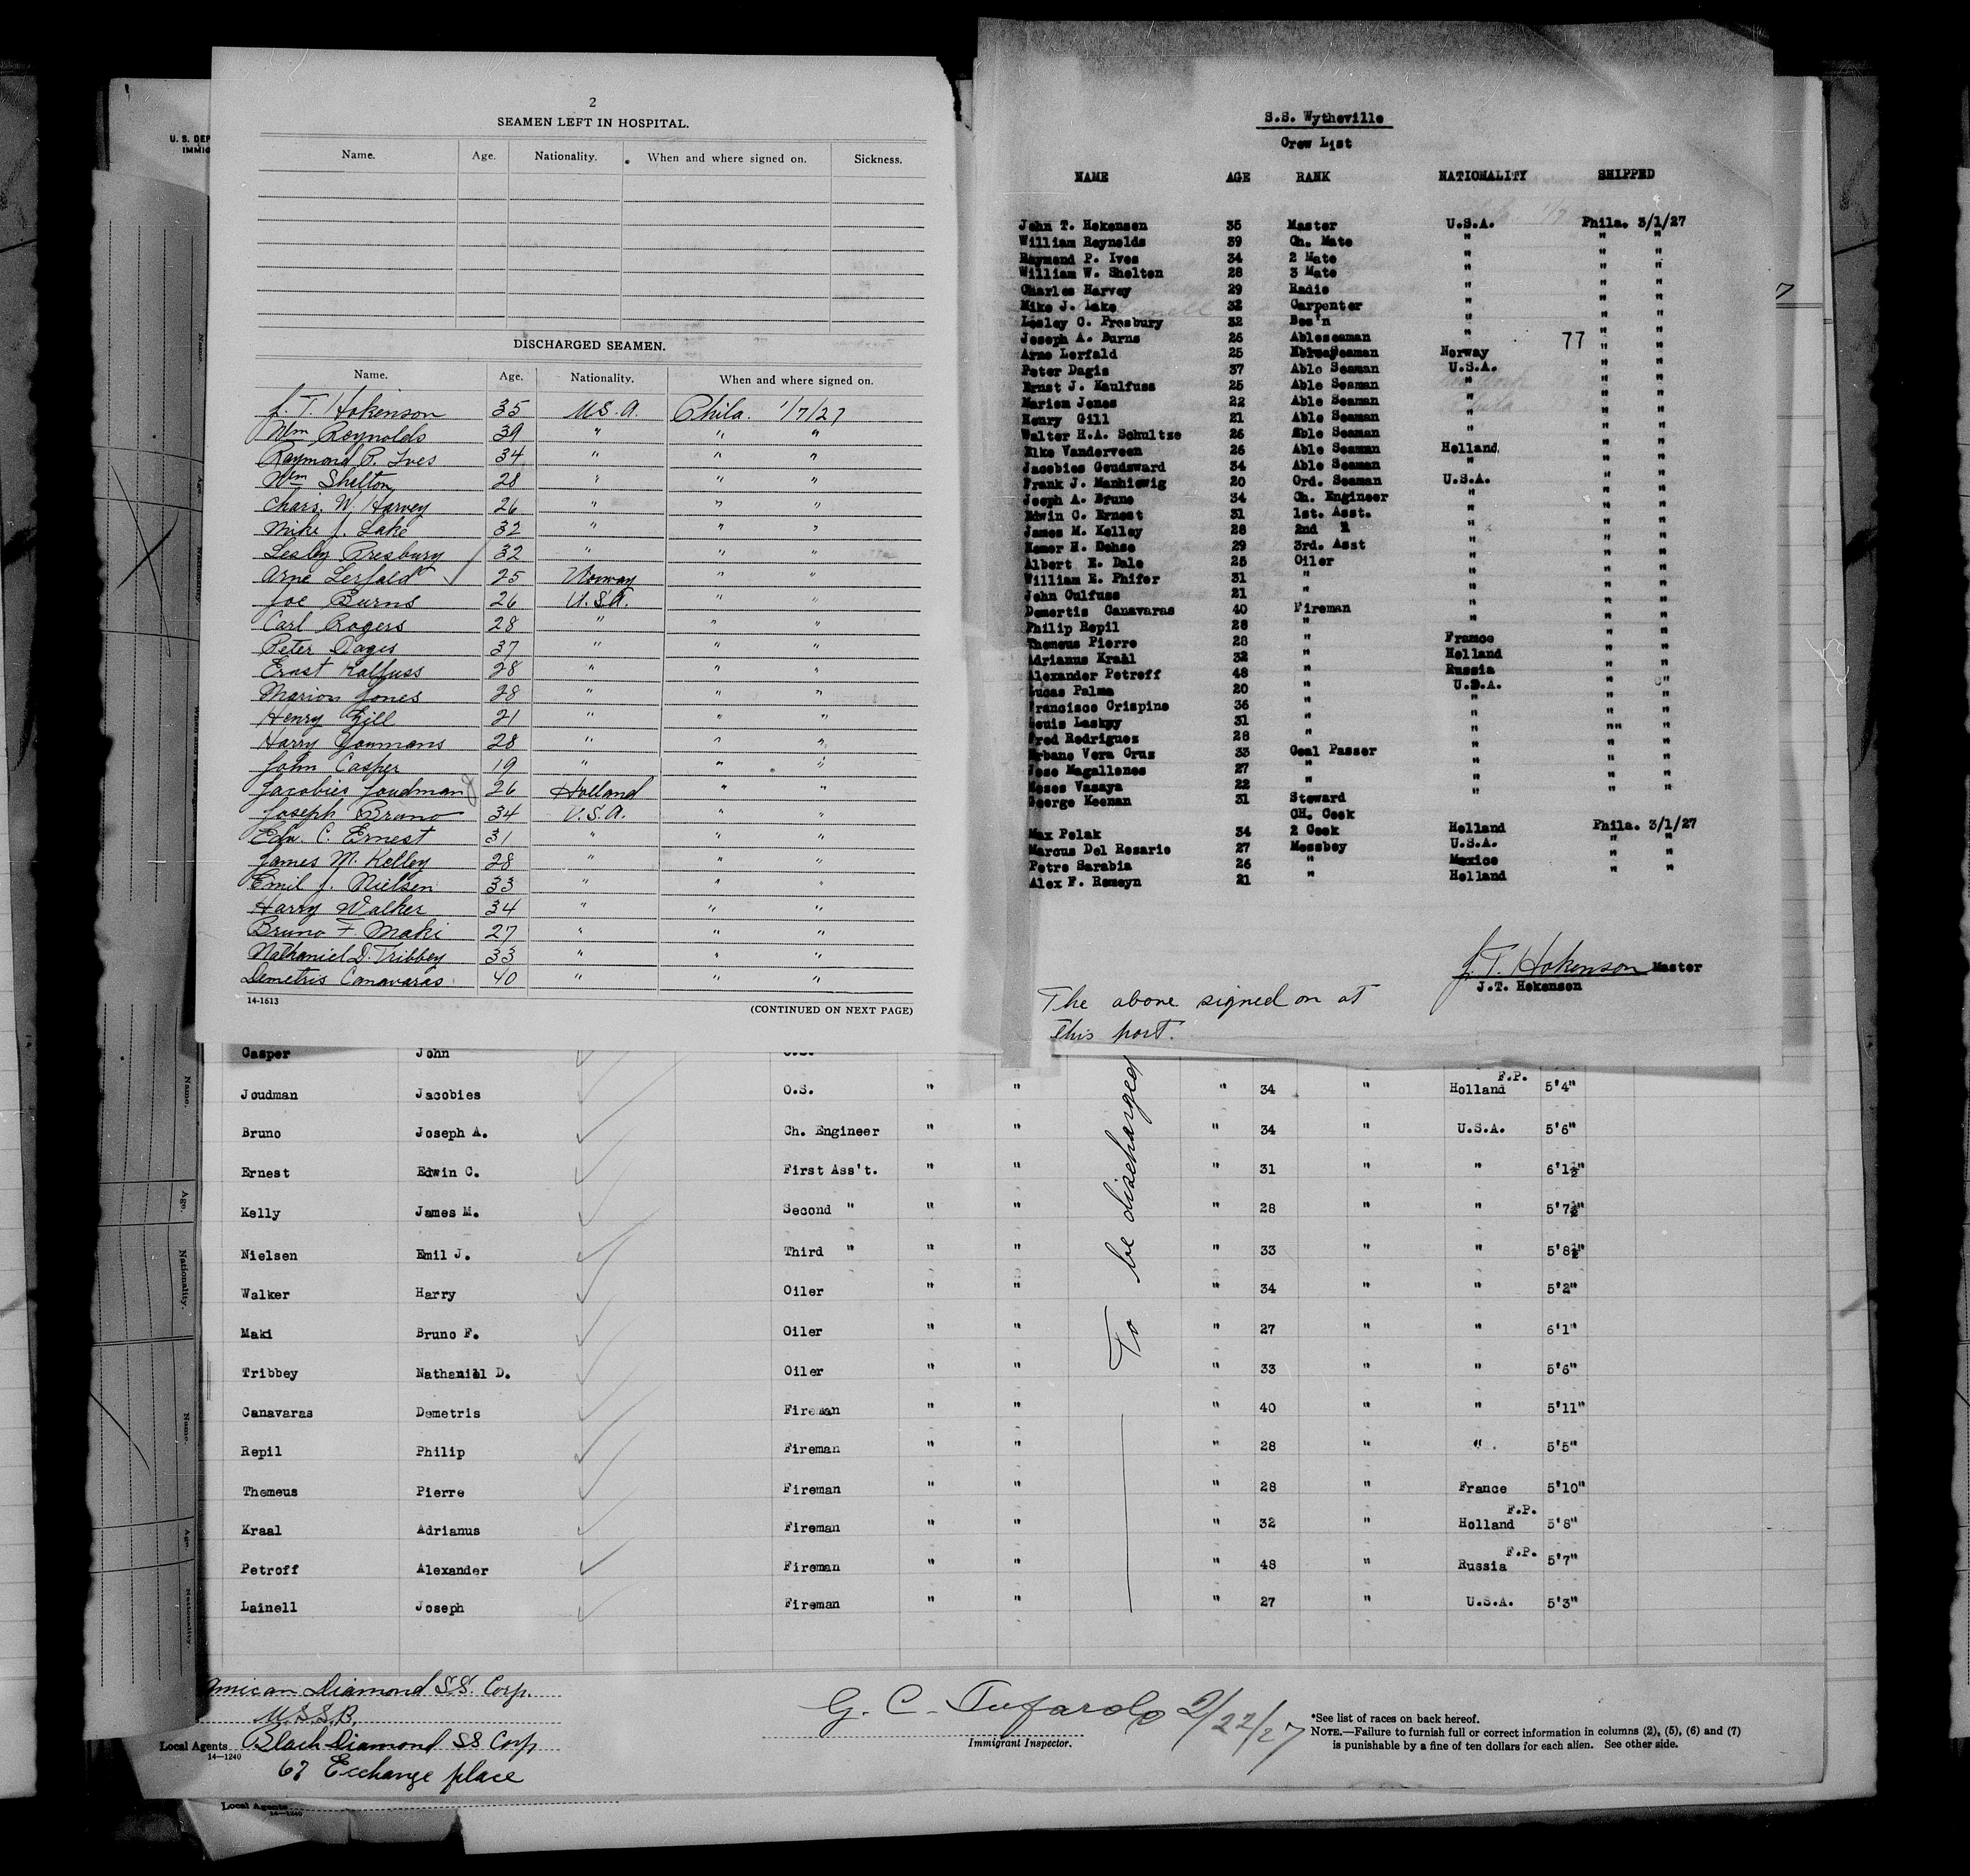 2
SEAMEN LEFT IN HOSPITAL.
Name. Age. Nationality. When and where signed on. Sickness.
DISCHARGED SEAMEN.
Name. Age. Nationality. When and where signed on.
J. T. Hokenson 35 U.S.A. Phila. 1/7/27
Wm Reynolds 39 " " "
Raymond P. Ives 34 " " "
Wm Shelton 28 " " "
Chars. W. Harvey 26 " " "
Mike J. Lake 32 " " "
Lesley Presbury 32 " " "
Arne Lerfald 25 Norway " "
Joe Burns 26 U.S.A. " "
Carl Rogers 28 " " "
Peter Dagis 37 " " "
Ernst Kalfuss 28 " " "
Marion Jones 28 " " "
Henry Gill 21 " " "
Harry Youmans 28 " " "
John Casper 19 " " "
Jacobies Joudman 26 Holland " "
Joseph Bruno 34 U.S.A. " "
Edw. C. Ernest 31 " " "
James M. Kelley 28 " " "
Emil J. Nielsen 33 " " "
Harry Walker 34 " " "
Bruno F. Maki 27 " " "
Nathaniel D. Tribbey 33 " " "
Demetris Canavaras 40 " " "
14-1613
(CONTINUED ON NEXT PAGE)
S.S. Wytheville
Crew List
NAME AGE RANK NATIONALITY SHIPPED
John T. Hokensen 35 Master U.S.A. Phila. 3/1/27
William Reynolds 39 Ch. Mate " " "
Raymond P. Ives 34 2 Mate " " "
William W. Shelton 28 3 Mate " " "
Charles Harvey 29 Radio " " "
Mike J. Lake 32 Carpenter " " "
Lesley C. Presbury 32 Bos'n " " "
Joseph A. Burns 26 Ableseaman " 77 " "
Arne Lerfald 25 Seaman Norway " "
Peter Dagis 37 Able Seaman U.S.A. " "
Ernst J. Kaulfuss 25 Able Seaman " " "
Marion Jones 22 Able Seaman " " "
Henry Gill 21 Able Seaman " " "
Walter H.A. Schultze 26 Able Seaman " " "
Elke Vanderveen 26 Able Seaman Holland " "
Jacobies Goudsward 34 Able Seaman " " "
Frank J. Manhiewig 20 Ord. Seaman U.S.A. " "
Joeph A. Bruno 34 Ch. Engineer " " "
Edwin C. Ernest 31 1st. Asst. " " "
James M. Kelley 28 2nd " " " "
Homer H. Dehse 29 3rd. Asst " " "
Albert E. Dale 25 Oiler " " "
William E. Phifer 31 " " " "
John Culfuss 21 " " " "
Demertis Canavaras 40 Fireman " " "
Philip Repil 28 " " " "
Themeus Pierre 28 " France " "
Adrianus Kraal 32 " Holland " "
Alexander Petroff 48 " Russia " "
Lucas Palma 20 " U.S.A. " "
Francisco Crispine 36 " " " "
Louis Laskyy 31 " " " "
Fred Rodriguez 28 " " "" "
Urbano Vera Cruz 33 Coal Passer " " "
Jose Magallenes 27 " " " "
Moses Vasaya 22 " " " "
George Keenan 31 Steward " " "
CH. Cook
Max Polak 34 2 Cook Holland Phila. 3/1/27
Marcus Del Rosario 27 Messboy U.S.A. " "
Petro Sarabia 26 " Mexico " "
Alex F. Romeyn 21 " Holland " "
J. T. Hokenson Master
J.T. Hokensen
The above signed on at
this port.
U. S. DEP
IMMIG
Casper John
Joudman Jacobies O.S. " " " 34 " Holland F.P. 5'4"
Bruno Joseph A. Ch. Engineer " " " 34 " U.S.A. 5'6"
Ernest Edwin C. First Ass't. " " " 31 " " 6'1½"
Kelly James M. Second " " " " 28 " " 5'7½"
Nielsen Emil J. Third " " " " 33 " " 5'8½"
Walker Harry Oiler " " " 34 " " 5'2"
Maki Bruno F. Oiler " " " 27 " " 6'1"
Tribbey Nathaniel D. Oiler " " " 33 " " 5'6"
Canavaras Demetris Fireman " " " 40 " " 5'11"
Repil Philip Fireman " " " 28 " " 5'5"
Themeus Pierre Fireman " " " 28 " France 5'10"
Kraal Adrianus Fireman " " " 32 " Holland F.P. 5'8"
Petroff Alexander Fireman " " " 48 " Russia F.P. 5'7"
Lainell Joseph Fireman " " " 27 " U.S.A. 5'3"
To be discharged
American Diamond SS. Corp.
U.S.S.B.
Local Agents Black Diamond SS Corp
14-1240
67 Exchange place
G. C. Tufarolo 2/22/27
Immigrant Inspector.
*See list of races on back hereof.
NOTE.—Failure to furnish full or correct information in columns (2), (5), (6) and (7)
is punishable by a fine of ten dollars for each alien. See other side.
Local Agents
14-1240
Name.
Age.
Nationality.
Name.
Age.
Nationality.